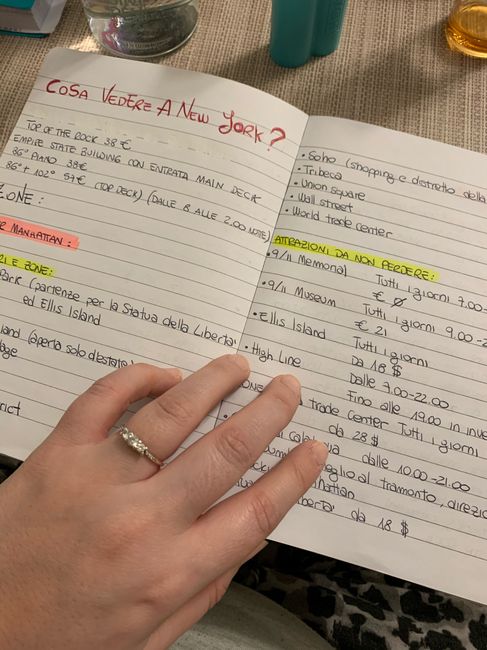 COSA VEDERE A NEW YORK?
TOP OF THE ROCK 38 €
EMPIRE STATE BUILDING CON ENTRATA MAIN DECK
86° PIANO 38€
86° + 102° 57 € (TOP DECK) (DALLE 8 ALLE 2.00 NOTTE)
ZONE:
MANHATTAN:
E ZONE:
Park (partenze per la Statua della Libertà
ed Ellis Island
Island (aperta solo d'estate)
• Soho (shopping e distretto della
• Tribeca
• Union square
• Wall street
• World trade center
ATTRAZIONI DA NON PERDERE:
• 9/11 Memorial Tutti i giorni 7.00-
€ 0
• 9/11 Museum Tutti i giorni 9.00-
€ 21
• Ellis Island Tutti i giorni
Da 18 $
• High Line Dalle 7.00-22.00
Fino alle 19.00 in
trade center Tutti i giorni
da 28 $
dalle 10.00-21.00
al tramonto,
da 18 $